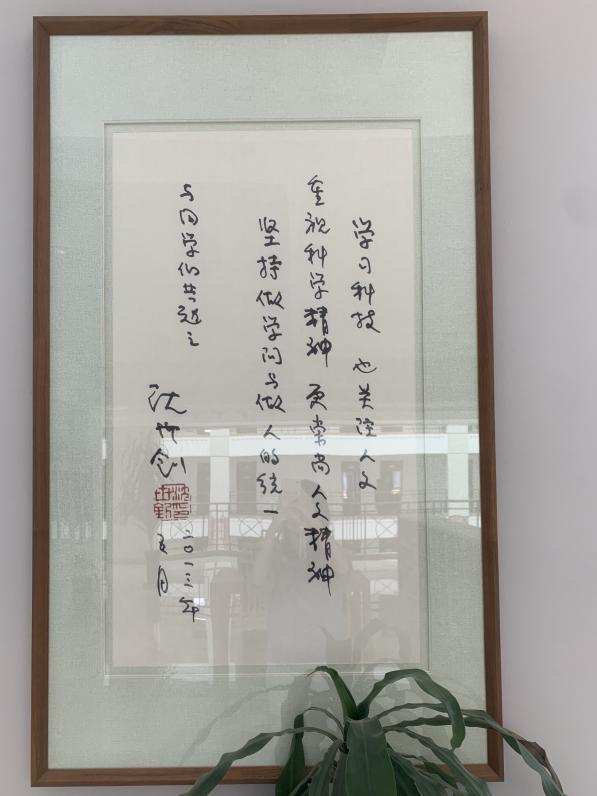 学习科技 也关注人文
重视科学精神 更崇尚人文精神
坚持做学问与做人的统一
与同学们共勉之
沈
二〇一三年
五月